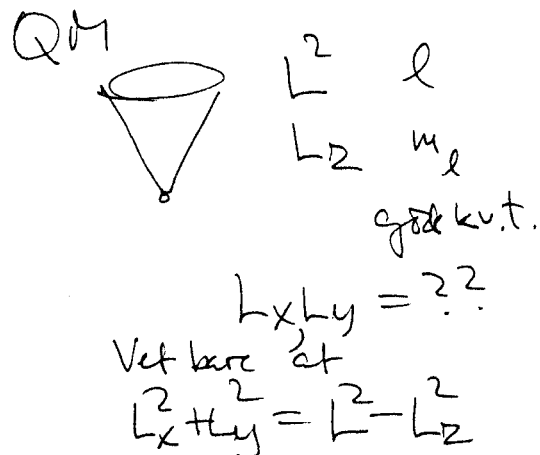 QM
L² l
L_z m_l
gode kv.t.
L_x, L_y = ??
Vet bare at
L_x² + L_y² = L² - L_z²